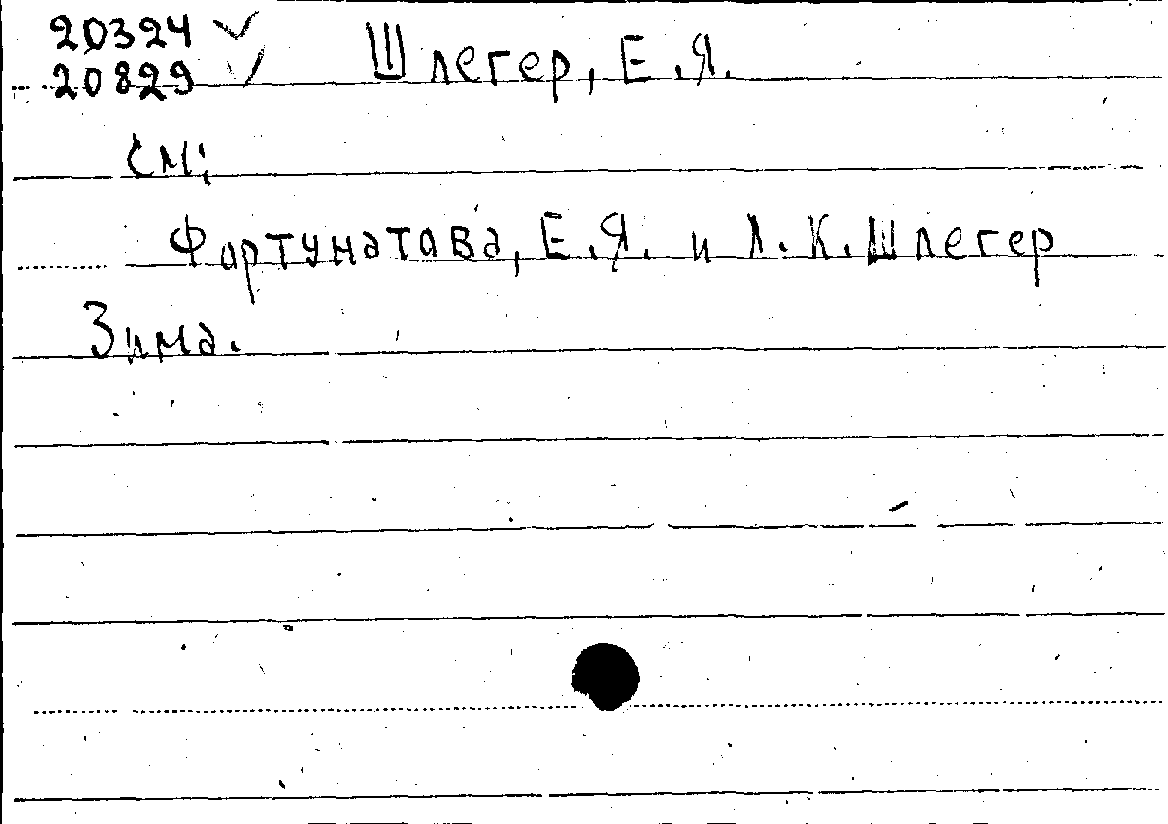 20324 ✓ Шлегер, Е.Я.
20829 ✓
см:
Фортунатова, Е.Я. и Л.К. Шлегер
Зима.